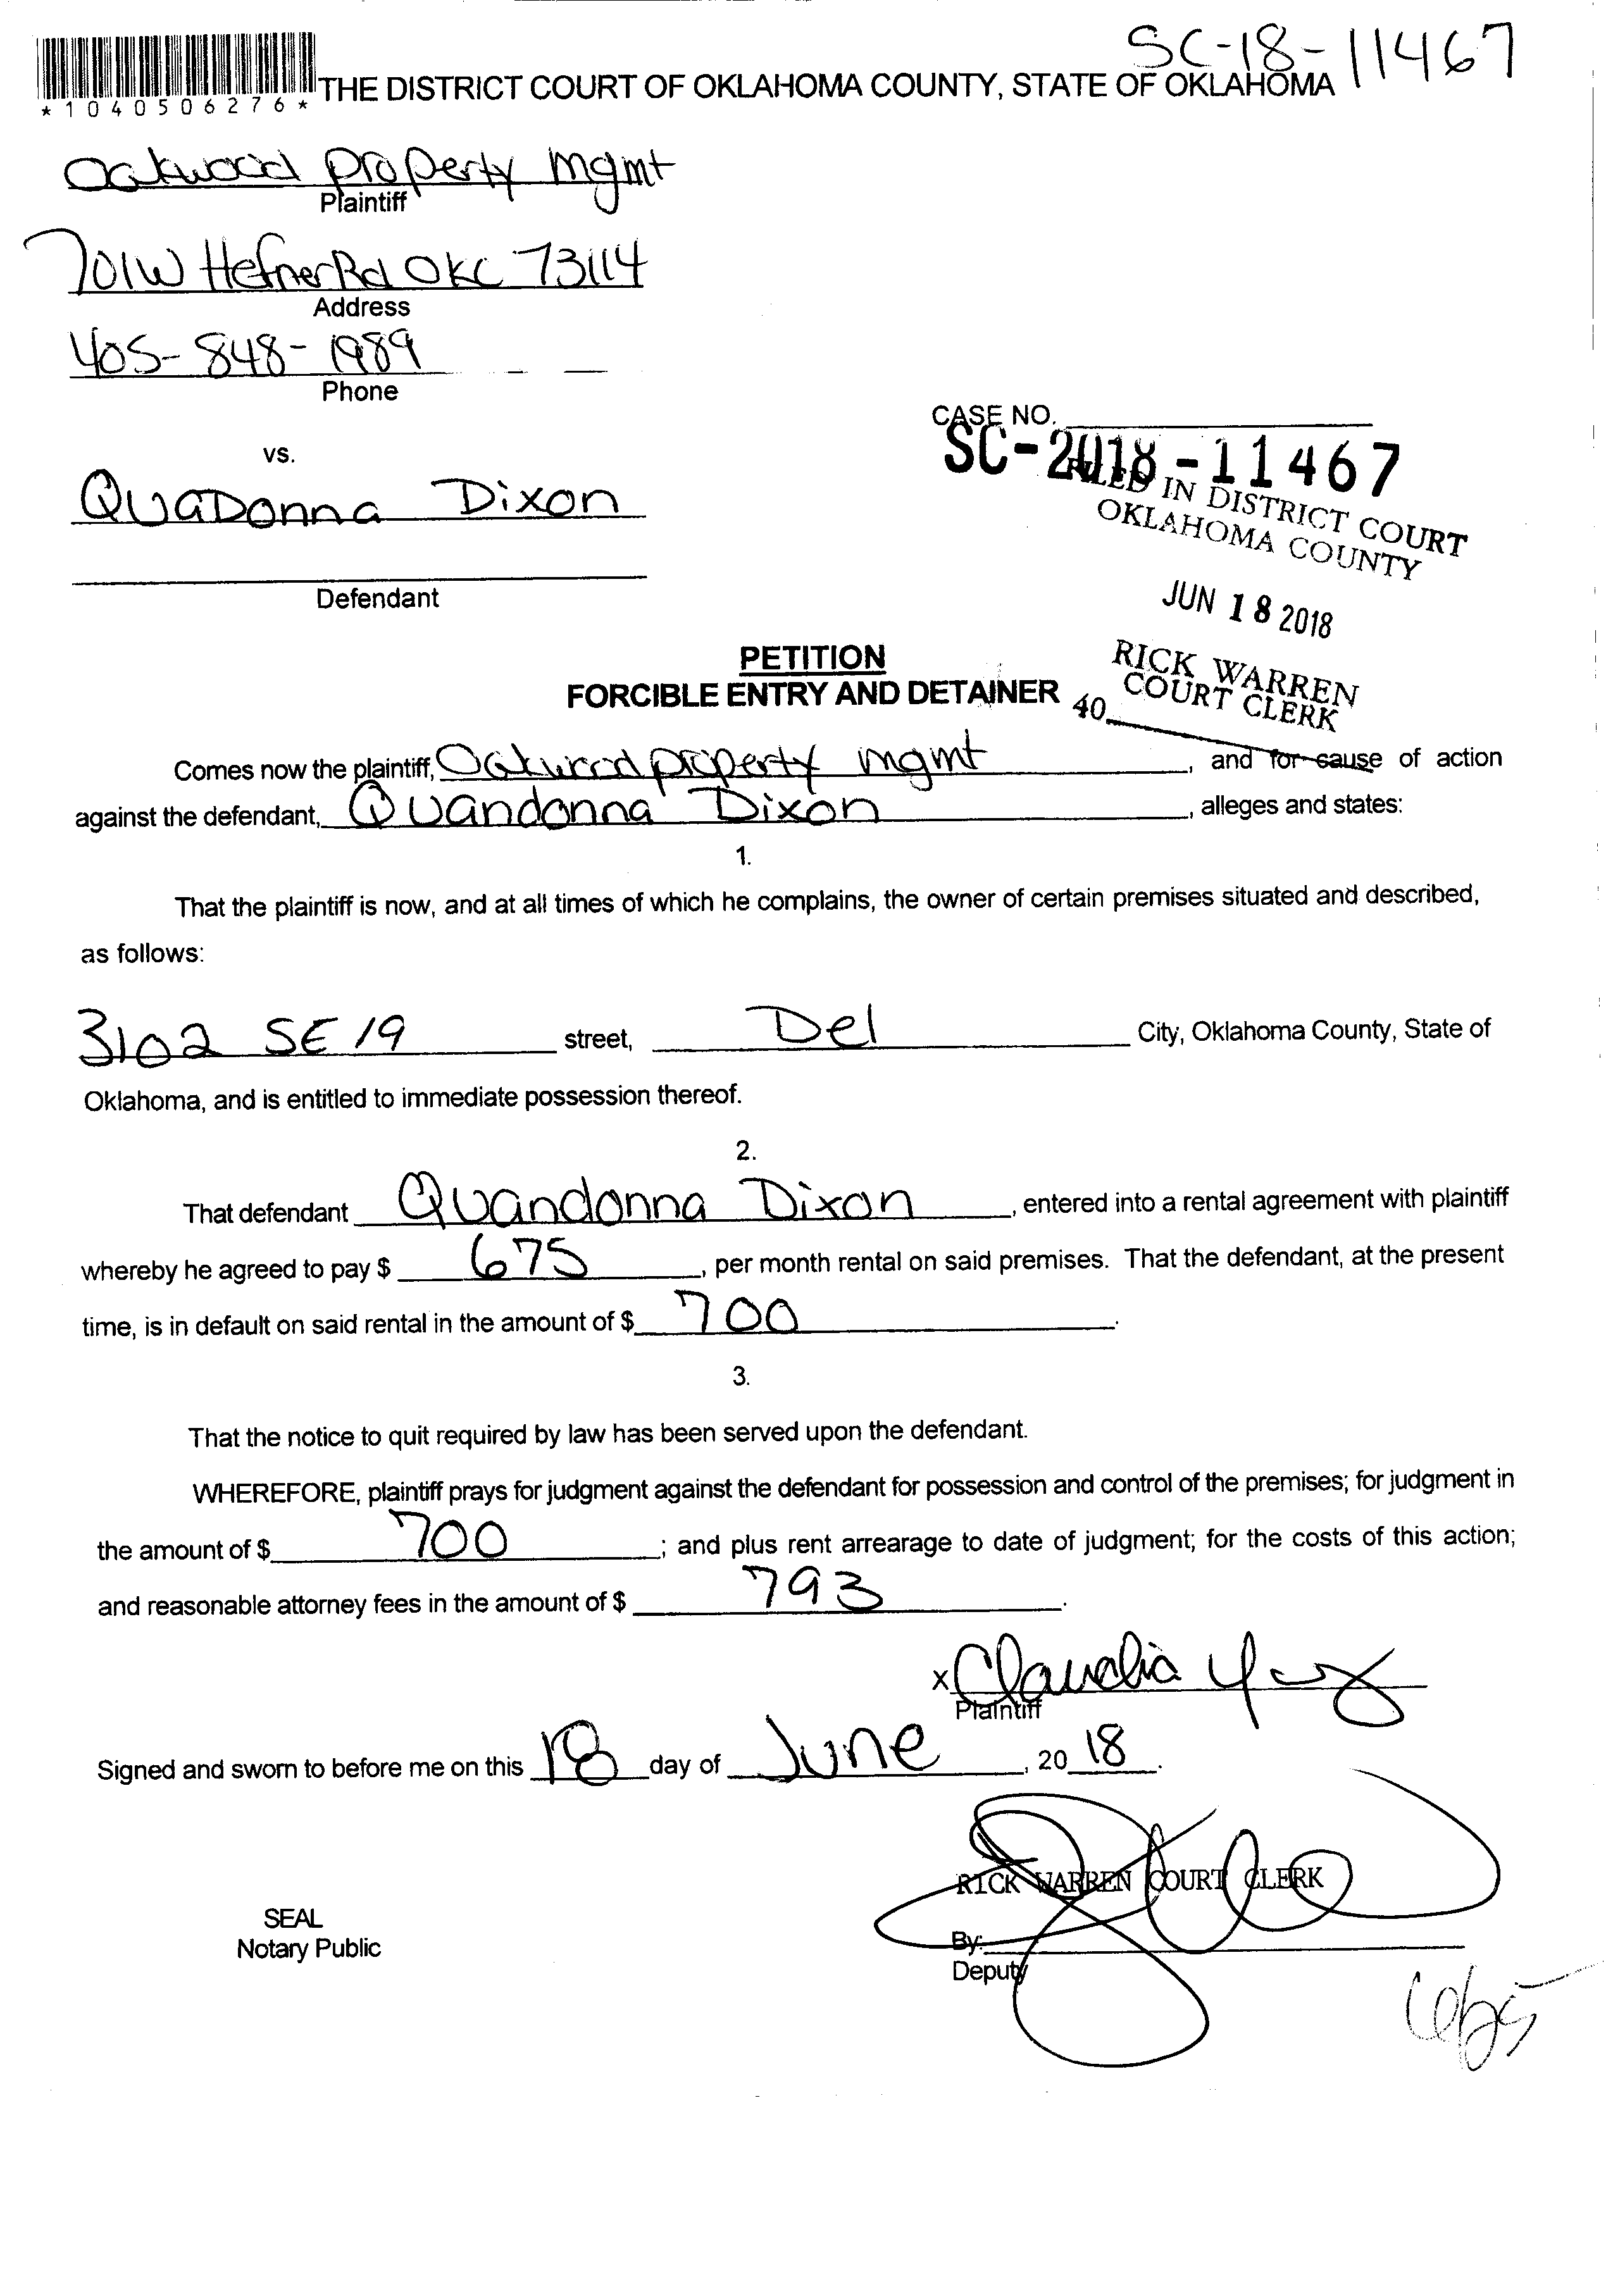 SC-18-11467
THE DISTRICT COURT OF OKLAHOMA COUNTY, STATE OF OKLAHOMA
*1040506276*
Oakwood property mgmt
Plaintiff
701W Hefner Rd OKC 73114
Address
405-848-1989
Phone
vs.
QuaDonna Dixon
Defendant
CASE NO.
SC-2018-11467
FILED IN DISTRICT COURT
OKLAHOMA COUNTY
JUN 18 2018
RICK WARREN
COURT CLERK
40
PETITION
FORCIBLE ENTRY AND DETAINER
Comes now the plaintiff, Oakwood property mgmt, and for cause of action
against the defendant, Quandonna Dixon, alleges and states:
1.
That the plaintiff is now, and at all times of which he complains, the owner of certain premises situated and described,
as follows:
3102 SE 19 street, Del City, Oklahoma County, State of
Oklahoma, and is entitled to immediate possession thereof.
2.
That defendant Quandonna Dixon, entered into a rental agreement with plaintiff
whereby he agreed to pay $ 675, per month rental on said premises. That the defendant, at the present
time, is in default on said rental in the amount of $ 700.
3.
That the notice to quit required by law has been served upon the defendant.
WHEREFORE, plaintiff prays for judgment against the defendant for possession and control of the premises; for judgment in
the amount of $ 700; and plus rent arrearage to date of judgment; for the costs of this action;
and reasonable attorney fees in the amount of $ 793.
x Claudia
Plaintiff
Signed and sworn to before me on this 18 day of June, 20 18.
RICK WARREN COURT CLERK
SEAL
Notary Public
By:
Deputy